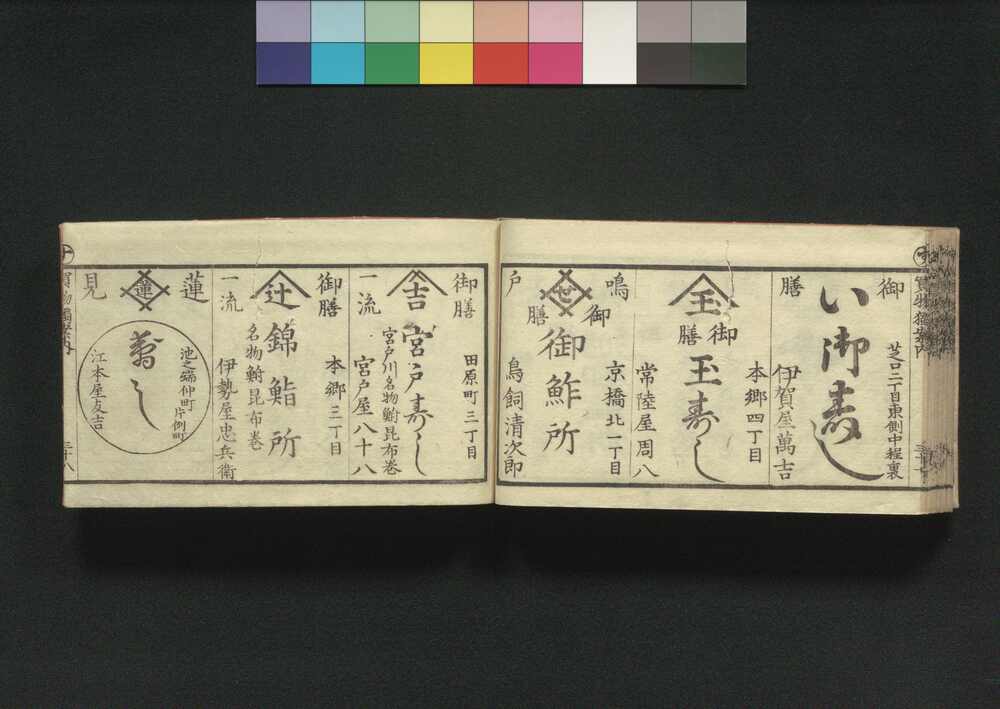 御膳
い御寿し
芝口二丁目東側中程裏
伊賀屋萬吉
玉
御膳
玉寿し
本郷四丁目
常陸屋周八
鳴戸
世
御膳
御鮓所
京橋北一丁目
鳥飼清次郎
三十七
御膳
一流
吉
宮戸寿し
田原町三丁目
宮戸川名物鮒昆布巻
宮戸屋八十八
御膳
一流
辻
錦鮨所
本郷三丁目
名物鮒昆布巻
伊勢屋忠兵衛
蓮見
蓮
寿し
池之端仲町片側町
江本屋友吉
三十八